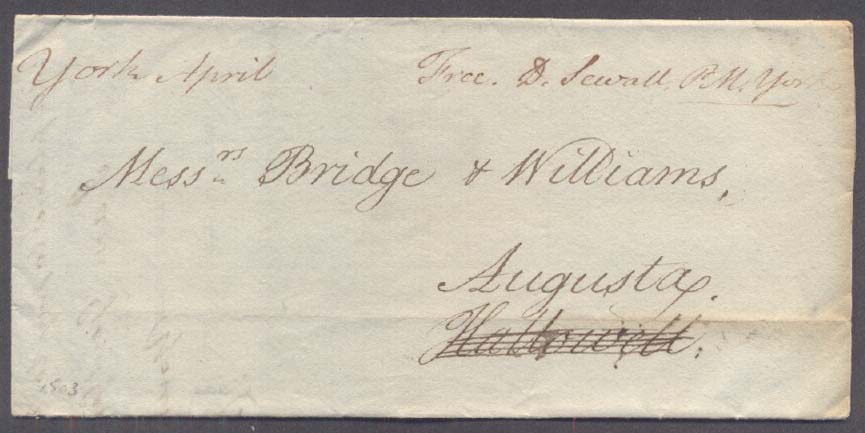 York April Free. D. Sewall. P.M. York
Messrs Bridge & Williams,
Augusta.
Hallowell.
1803